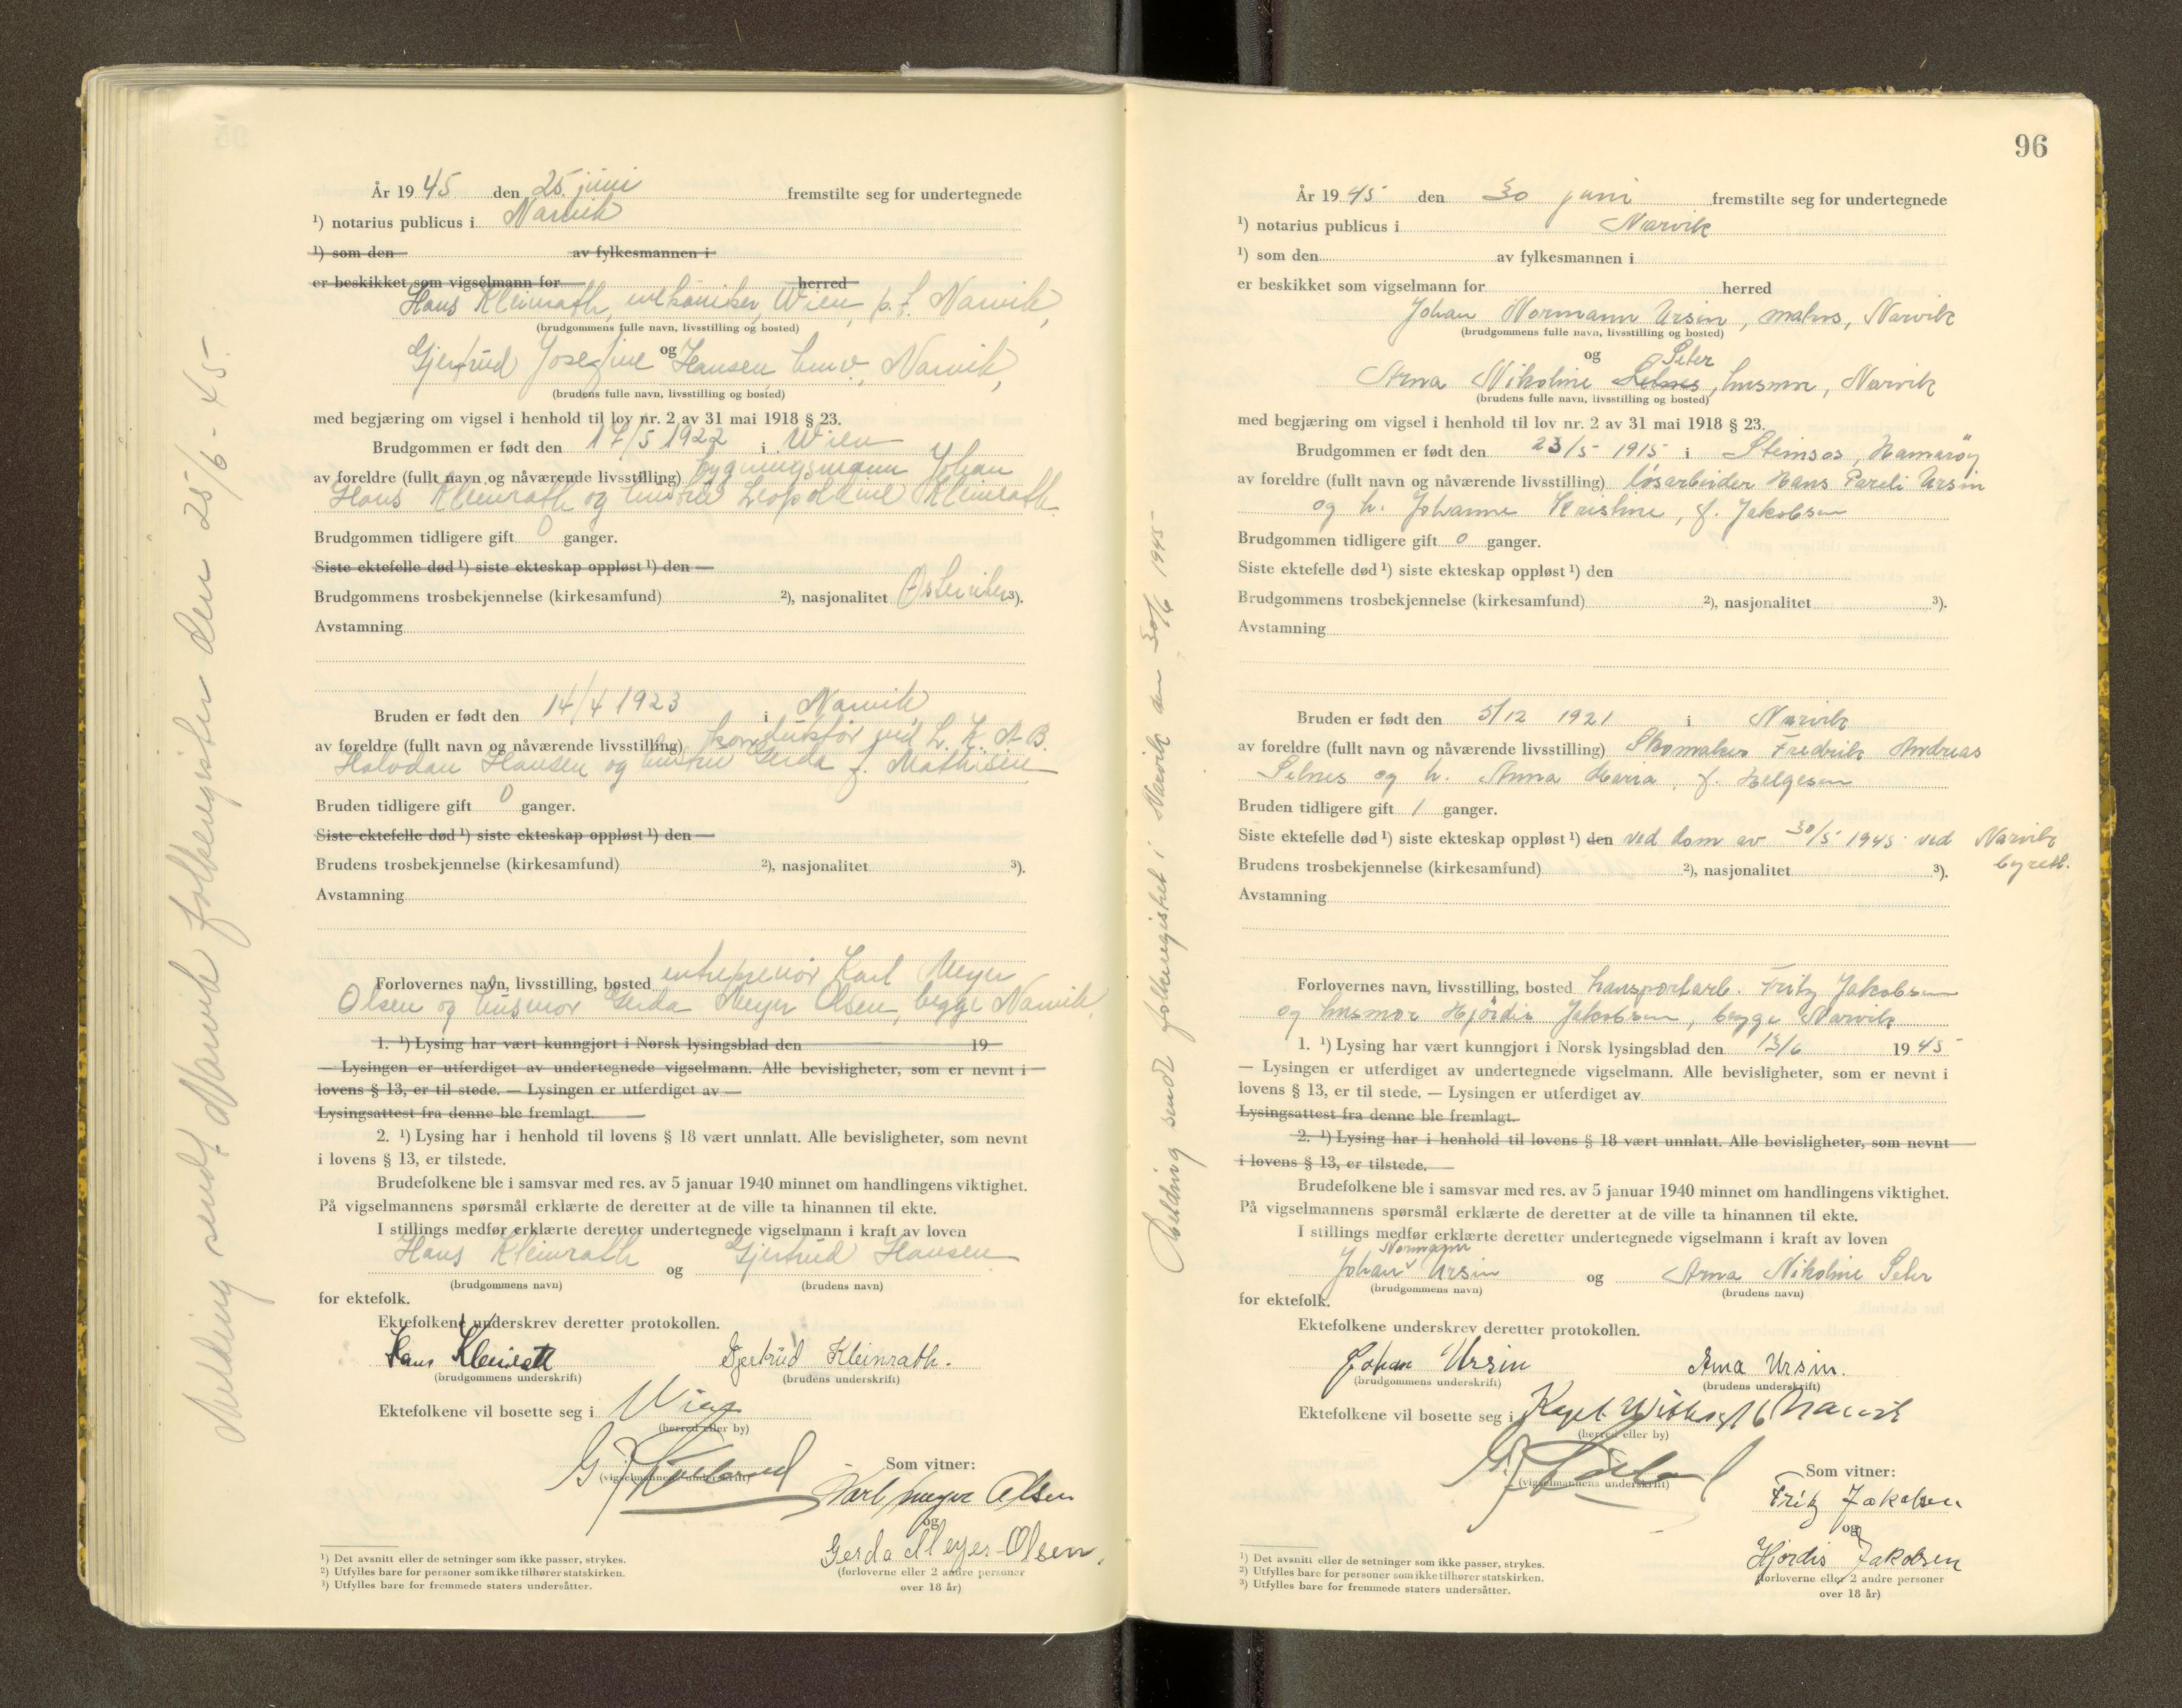 År 1945 den 25. juni fremstilte seg for undertegnede
¹) notarius publicus i Narvik
¹) som den av fylkesmannen i
er beskikket som vigselmann for herred
Hans Kleinrath, mekaniker, Wien, p.t. Narvik,
(brudgommens fulle navn, livsstilling og bosted)
og
Gjertrud Josefine Hansen hmv., Narvik,
(brudens fulle navn, livsstilling og bosted)
med begjæring om vigsel i henhold til lov nr. 2 av 31 mai 1918 § 23.
Brudgommen er født den 17/5 1922 i Wien
av foreldre (fullt navn og nåværende livsstilling) bygningsmann Johan
Hans Kleinrath og hustru Leopoldine Kleinrath.
Brudgommen tidligere gift 0 ganger.
Siste ektefelle død ¹) siste ekteskap oppløst ¹) den
Brudgommens trosbekjennelse (kirkesamfund) ²), nasjonalitet Østerriker ³).
Avstamning
Bruden er født den 14/4 1923 i Narvik
av foreldre (fullt navn og nåværende livsstilling) konduktør ved L.K.A.B.
Halvdan Hansen og hustru Gerda f. Mathisen
Bruden tidligere gift 0 ganger.
Siste ektefelle død ¹) siste ekteskap oppløst ¹) den
Brudens trosbekjennelse (kirkesamfund) ²), nasjonalitet ³).
Avstamning
Forlovernes navn, livsstilling, bosted entreprenør Karl Meyer
Olsen og husmor Gerda Meyer Olsen, begge Narvik.
1. ¹) Lysing har vært kunngjort i Norsk lysingsblad den 19
— Lysingen er utferdiget av undertegnede vigselmann. Alle bevisligheter, som er nevnt i
lovens § 13, er til stede. — Lysingen er utferdiget av
Lysingsattest fra denne ble fremlagt.
2. ¹) Lysing har i henhold til lovens § 18 vært unnlatt. Alle bevisligheter, som nevnt
i lovens § 13, er tilstede.
Brudefolkene ble i samsvar med res. av 5 januar 1940 minnet om handlingens viktighet.
På vigselmannens spørsmål erklærte de deretter at de ville ta hinannen til ekte.
I stillings medfør erklærte deretter undertegnede vigselmann i kraft av loven
Hans Kleinrath og Gjertrud Hansen
(brudgommens navn) (brudens navn)
for ektefolk.
Ektefolkene underskrev deretter protokollen.
Hans Kleinrath Gjertrud Kleinrath.
(brudgommens underskrift) (brudens underskrift)
Ektefolkene vil bosette seg i Wien
(herred eller by)
(vigselmannens underskrift)
Som vitner:
Karl Meyer Olsen
og
Gerda Meyer-Olsen.
(forloverne eller 2 andre personer
over 18 år)
¹) Det avsnitt eller de setninger som ikke passer, strykes.
²) Utfylles bare for personer som ikke tilhører statskirken.
³) Utfylles bare for fremmede staters undersåtter.
Melding sendt Narvik folkeregister den 25/6-45
96
År 1945 den 30 juni fremstilte seg for undertegnede
¹) notarius publicus i Narvik
¹) som den av fylkesmannen i
er beskikket som vigselmann for herred
Johan Normann Ursin, maler, Narvik
(brudgommens fulle navn, livsstilling og bosted)
og
Seter
Arna Nikoline Selnes, husmor, Narvik
(brudens fulle navn, livsstilling og bosted)
med begjæring om vigsel i henhold til lov nr. 2 av 31 mai 1918 § 23.
Brudgommen er født den 23/5 1915 i Steinsos, Hamarøy
av foreldre (fullt navn og nåværende livsstilling) løsarbeider Hans Pareli Ursin
og h. Johanne Kristine, f. Jakobsen
Brudgommen tidligere gift 0 ganger.
Siste ektefelle død ¹) siste ekteskap oppløst ¹) den
Brudgommens trosbekjennelse (kirkesamfund) ²), nasjonalitet ³).
Avstamning
Bruden er født den 5/12 1921 i Narvik
av foreldre (fullt navn og nåværende livsstilling) Skomaker Fredrik Andreas
Selnes og h. Anna Maria, f. Helgesen
Bruden tidligere gift 1 ganger.
Siste ektefelle død ¹) siste ekteskap oppløst ¹) den ved dom av 30/5 1945 ved Narvik
byrett.
Brudens trosbekjennelse (kirkesamfund) ²), nasjonalitet ³).
Avstamning
Forlovernes navn, livsstilling, bosted transportarb. Fritz Jakobsen
og husmor Hjørdis Jakobsen, begge Narvik
1. ¹) Lysing har vært kunngjort i Norsk lysingsblad den 13/6 1945
— Lysingen er utferdiget av undertegnede vigselmann. Alle bevisligheter, som er nevnt i
lovens § 13, er til stede. — Lysingen er utferdiget av
Lysingsattest fra denne ble fremlagt.
2. ¹) Lysing har i henhold til lovens § 18 vært unnlatt. Alle bevisligheter, som nevnt
i lovens § 13, er tilstede.
Brudefolkene ble i samsvar med res. av 5 januar 1940 minnet om handlingens viktighet.
På vigselmannens spørsmål erklærte de deretter at de ville ta hinannen til ekte.
I stillings medfør erklærte deretter undertegnede vigselmann i kraft av loven
Normann
Johan ˅ Ursin og Arna Nikoline Seter
(brudgommens navn) (brudens navn)
for ektefolk.
Ektefolkene underskrev deretter protokollen.
Johan Ursin Arna Ursin.
(brudgommens underskrift) (brudens underskrift)
Ektefolkene vil bosette seg i Narvik
(herred eller by)
(vigselmannens underskrift)
Som vitner:
Fritz Jakobsen
og
Hjørdis Jakobsen
(forloverne eller 2 andre personer
over 18 år)
¹) Det avsnitt eller de setninger som ikke passer, strykes.
²) Utfylles bare for personer som ikke tilhører statskirken.
³) Utfylles bare for fremmede staters undersåtter.
Melding sendt folkeregistret i Narvik den 30/6 1945